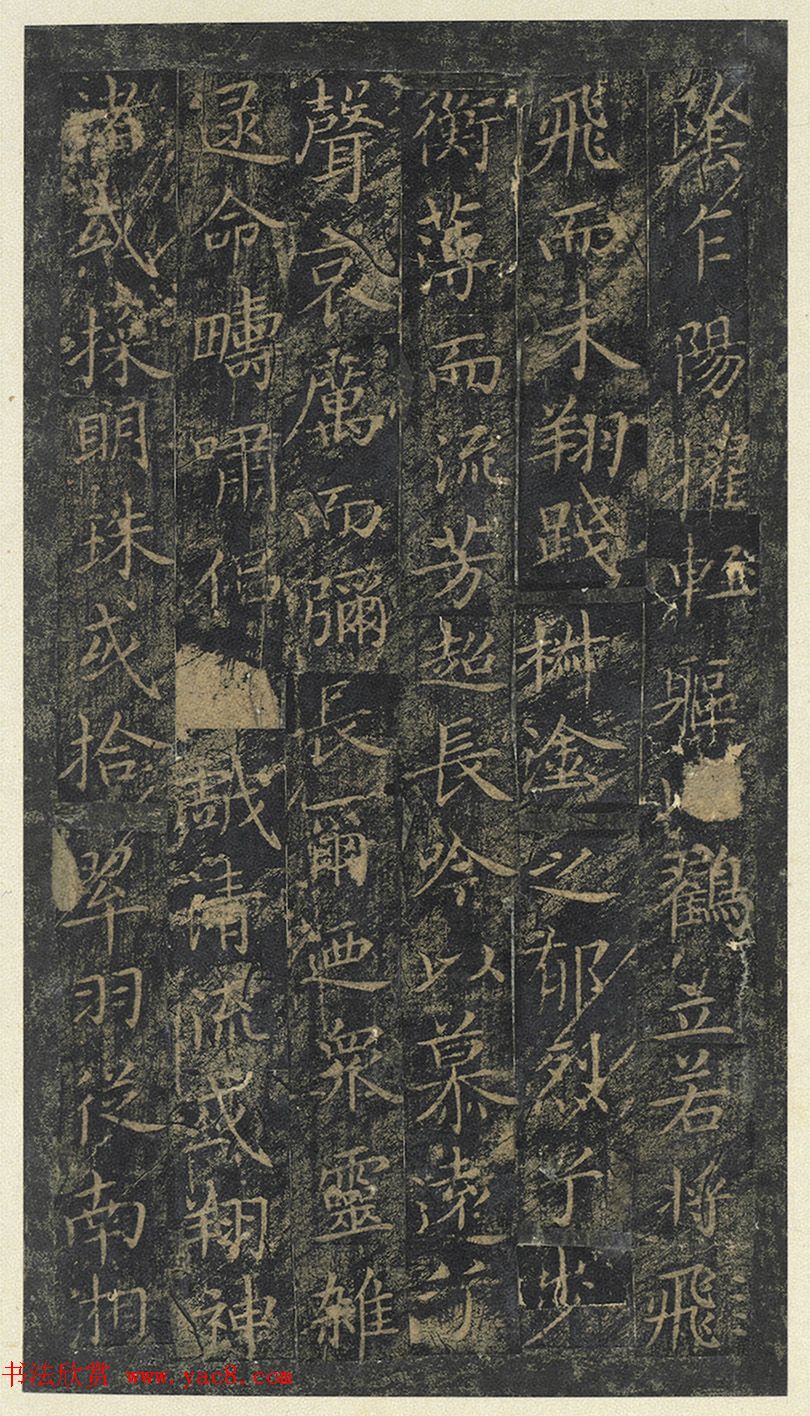 陰乍陽擢輕軀以鶴立若將飛
飛而未翔踐椒塗之郁烈步
衡薄而流芳超長吟以慕遠兮
聲哀厲而彌長爾迺衆靈雜
遝命疇嘯侶戲清流或翔神
渚或採明珠或拾翠羽從南湘
书法欣赏 www.yac8.com